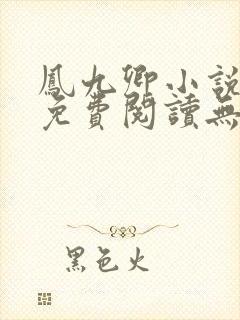 鳳九卿小說
免費閱讀無
黑色火